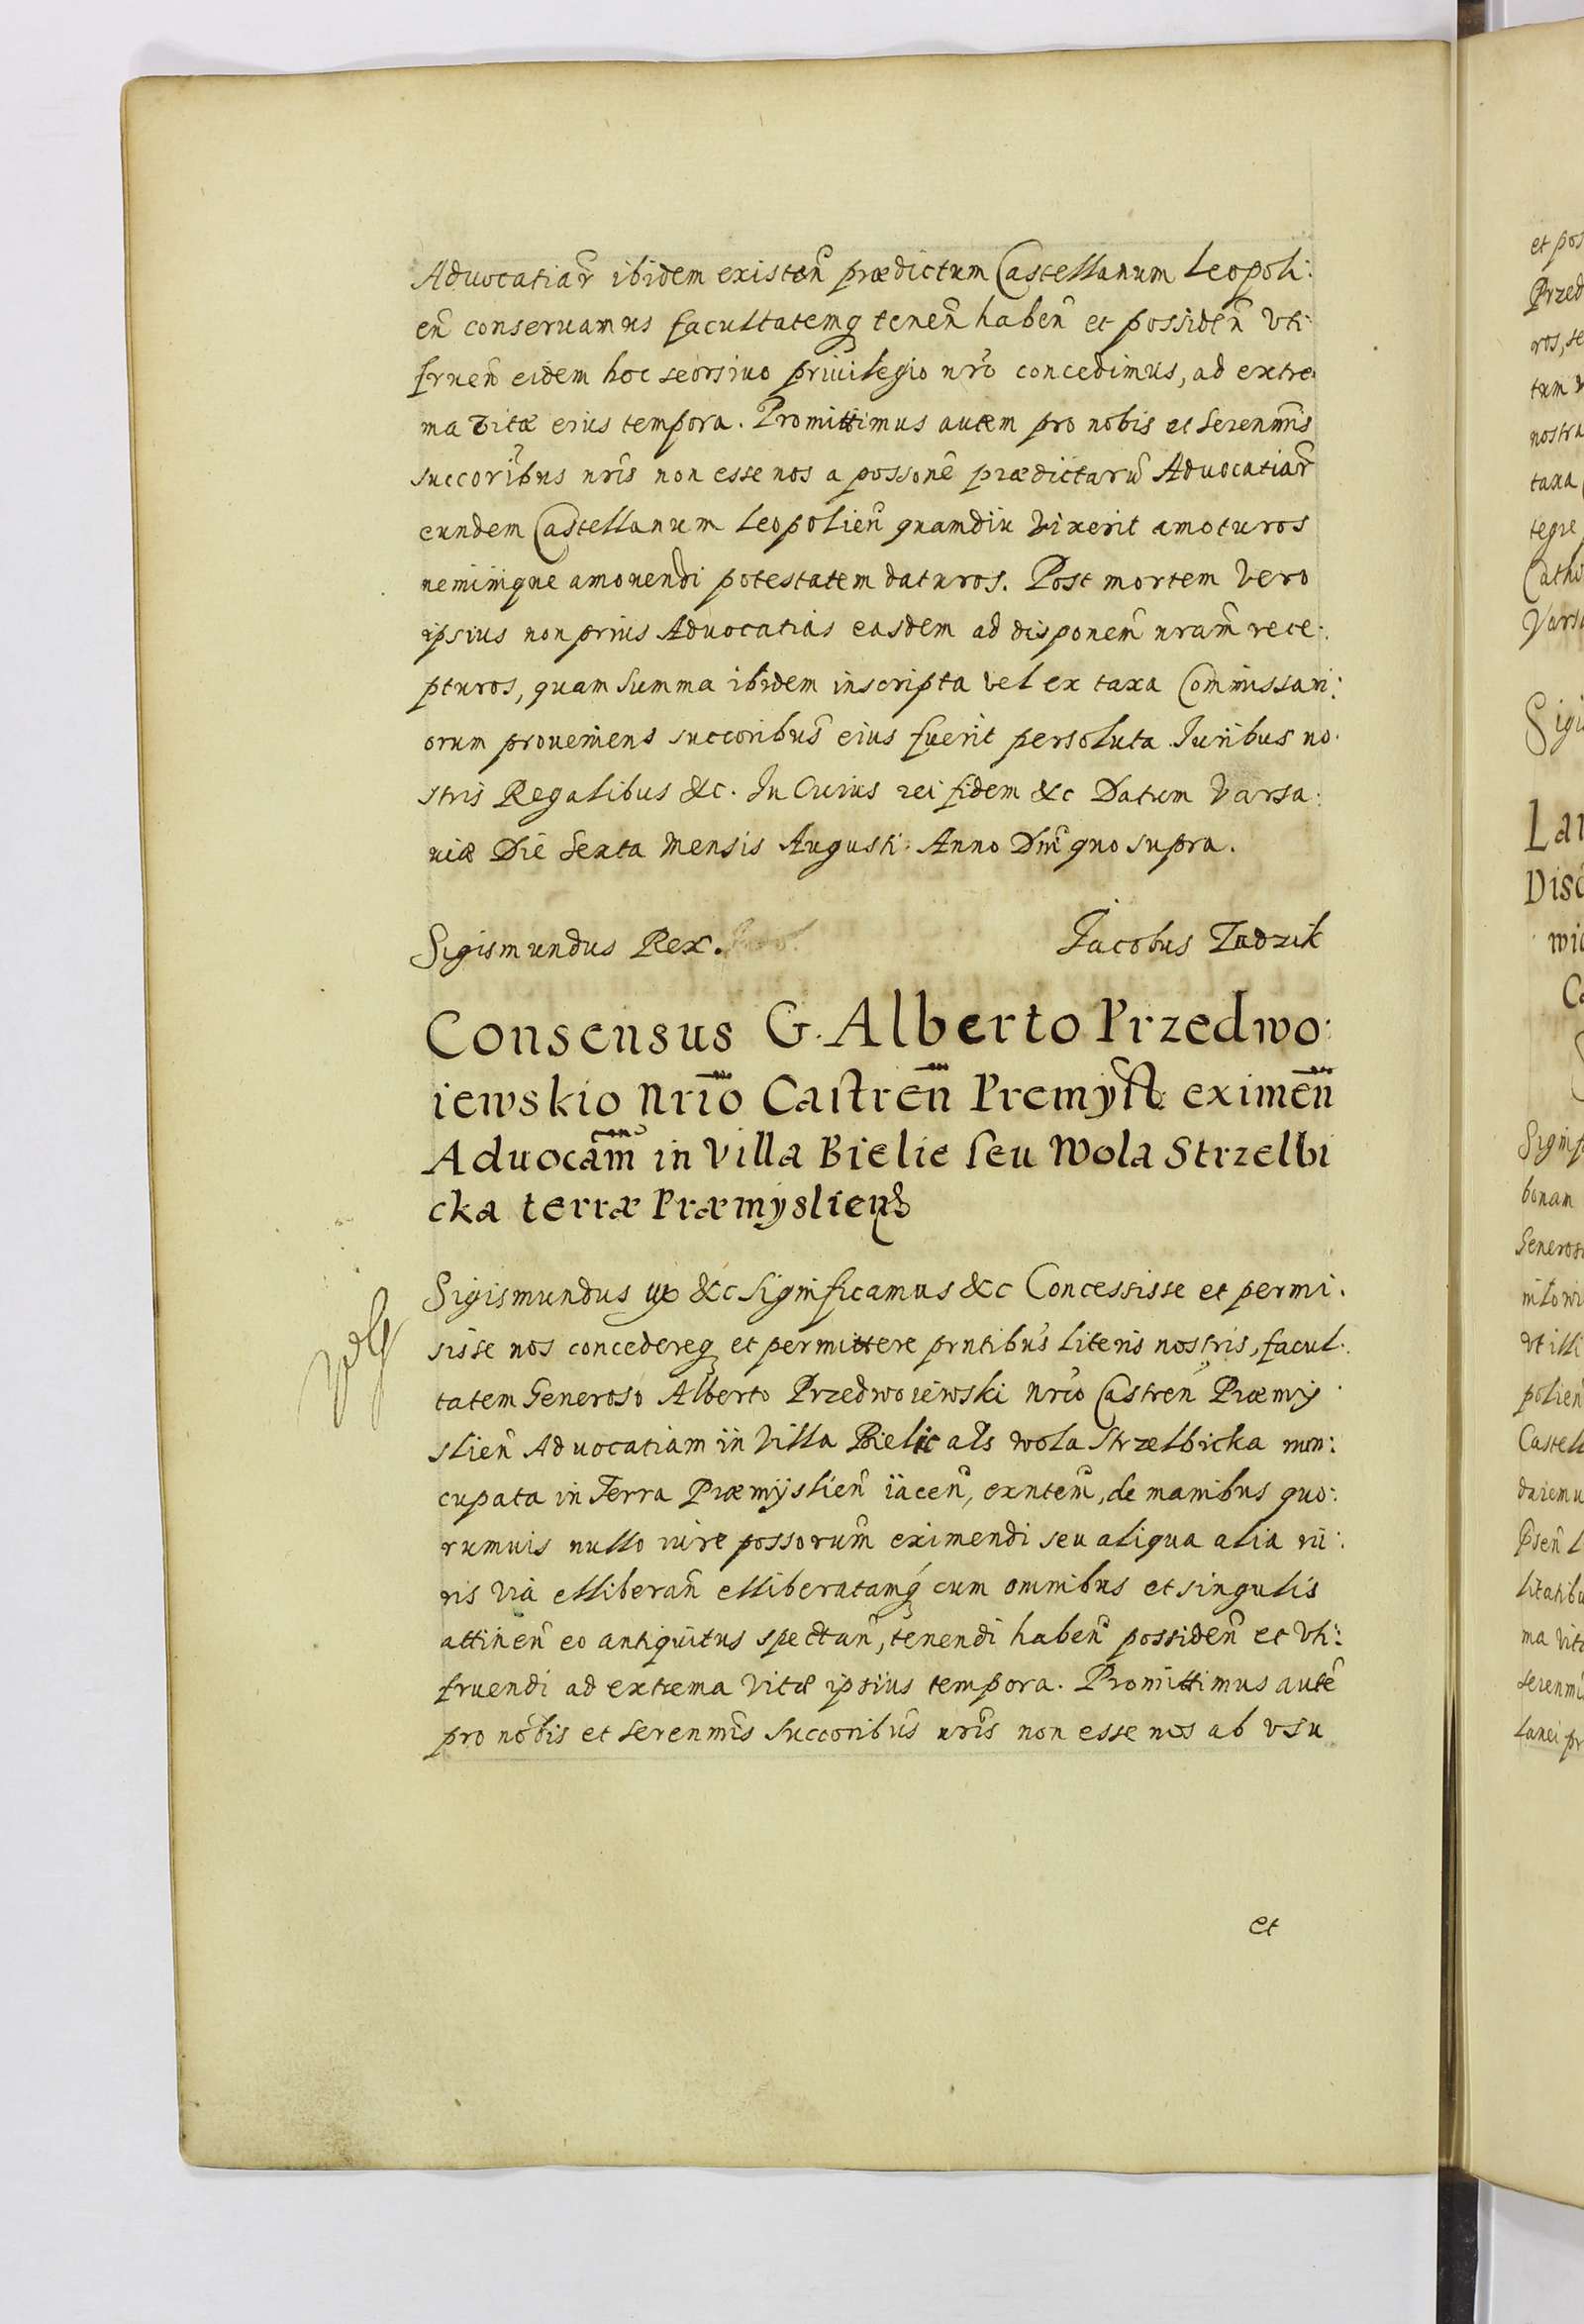 Advocatiar̃ ibidem existeñ prædictum Castellanum Leopoli:
eñ conseruamus facultatemq teneñ habeñ et possideñ vti
frueñ eidem hoc seorsiuo priuilegio nr̃o concedimus, ad extre:
ma vitæ eius tempora. Promittimus autem pro nobis et Serenmis
succoribus nr̃is non esse nos a possone prædictarũ Advocatiar̃
eundem Castellanum Leopolieñ quamdiu vixerit amoturos
neminique amouendi potestatem daturos. Post mortem vero
ipsius non prius Advocatias easdem ad disponem̃ nram̃ rece:
pturos, quam summa ibidem inscripta vel ex taxa Commissari:
orum proueniens succoribus eius fuerit persoluta Iuribus no:
stris Regalibus &c. In Cuius rei fidem &c Datum Varsa:
uiæ Die Sexta Mensis Augusti. Anno Dni quo supra.
Sigismundus Rex. Jacobus Zadzik
Consensus G. Alberto Przedwo:
iewskio Nrio Castreñ Premysl eximeñ
Advocam̃ in Villa Bielie seu Wola Strzelbi
cka terræ Præmyslieñ
Sigismundus &c Significamus &c Concessisse et permi:
sisse nos concedereq et permittere pr̃ntibus literis nostris, facul:
tatem Generoso Alberto Przedwoiewski Nrio Castreñ Præmy
slieñ Advocatiam in Villa Bielic als wola Strzelbicka nun:
cupata in Terra Præmyslieñ iaceñ, exntem, de manibus quo:
rumuis nullo iure possorum̃ eximendi seu aliqua alia iu:
ris via elliberañ elliberatamq cum omnibus et singulis
attineñ eo antiquitus spectañ, tenendi habeñ possideñ et vti:
fruendi ad extrema vitæ ipsius tempora. Promittimus autẽ
pro nobis et serenmis succoribus nr̃is non esse nos ab vsu
et